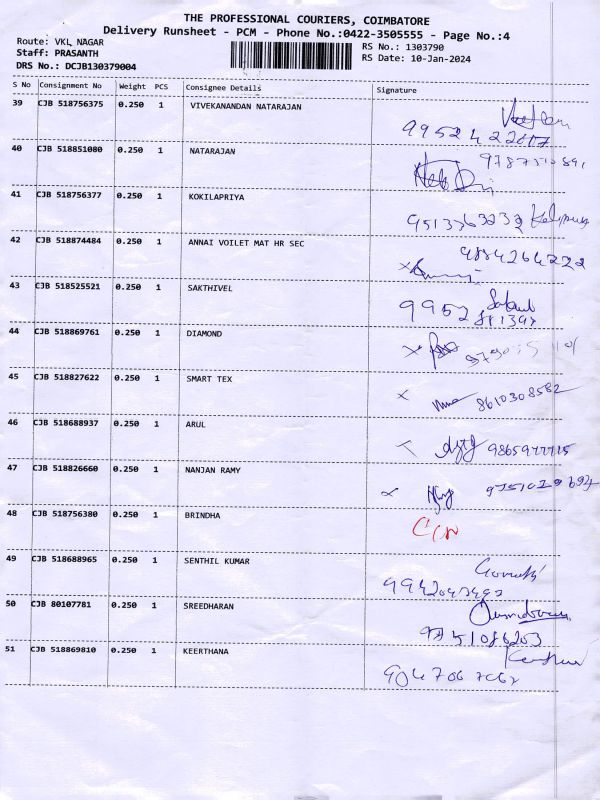 THE PROFESSIONAL COURIERS, COIMBATORE
Delivery Runsheet - PCM - Phone No.:0422-3505555 - Page No.:4
Route: VKL NAGAR
Staff: PRASANTH
DRS No.: DCJB130379004
RS No.: 1303790
RS Date: 10-Jan-2024
S No Consignment No Weight PCS Consignee Details Signature
39 CJB 518756375 0.250 1 VIVEKANANDAN NATARAJAN
40 CJB 518851080 0.250 1 NATARAJAN
41 CJB 518756377 0.250 1 KOKILAPRIYA
9513363232
42 CJB 518874484 0.250 1 ANNAI VOILET MAT HR SEC
9884264222
43 CJB 518525521 0.250 1 SAKTHIVEL
44 CJB 518869761 0.250 1 DIAMOND
45 CJB 518827622 0.250 1 SMART TEX
8610308582
46 CJB 518688937 0.250 1 ARUL
9865977715
47 CJB 518826660 0.250 1 NANJAN RAMY
48 CJB 518756380 0.250 1 BRINDHA
49 CJB 518688965 0.250 1 SENTHIL KUMAR
50 CJB 80107781 0.250 1 SREEDHARAN
9751086203
51 CJB 518869810 0.250 1 KEERTHANA